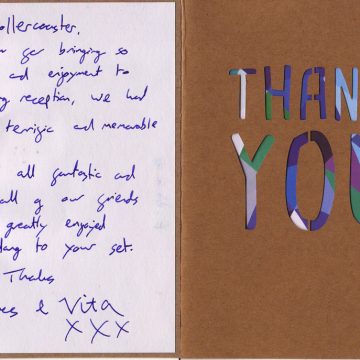 ollercoaster,
for bringing so
ad enjoyment to
g reception, we had
terrific ad memorable
all fantastic ad
all of our friends
greatly enjoyed
to your set.
Thanks
& Vita
xxx
THAN
YOU